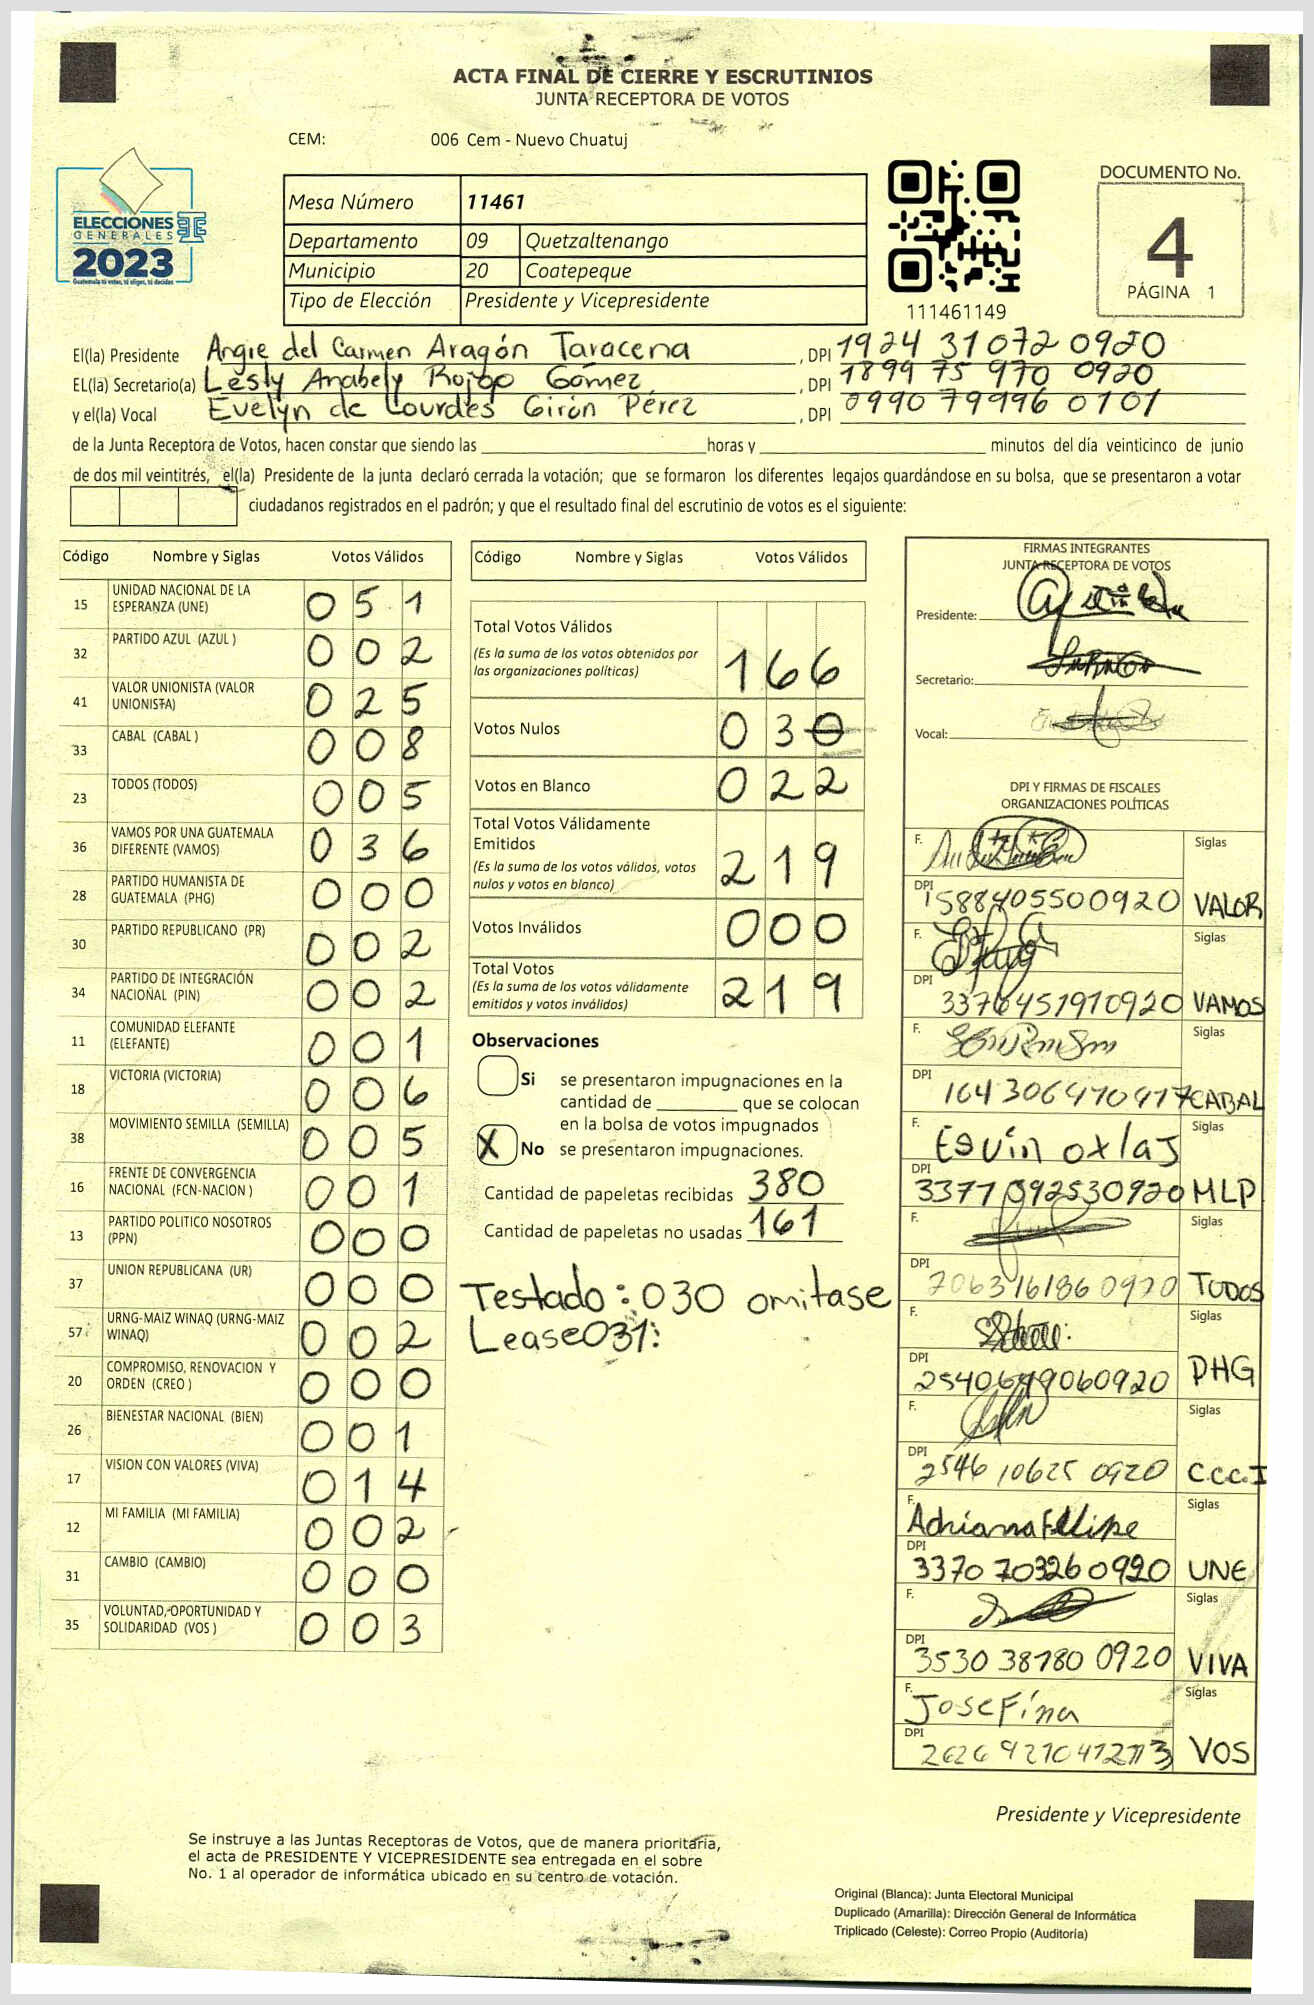 ACTA FINAL DE CIERRE Y ESCRUTINIOS
JUNTA RECEPTORA DE VOTOS
CEM: 006 Cem - Nuevo Chuatuj
ELECCIONES
GENERALES
2023
Guatemala tú votas, tú eliges, tú decides
Mesa Número 11461
Departamento 09 Quetzaltenango
Municipio 20 Coatepeque
Tipo de Elección Presidente y Vicepresidente
111461149
DOCUMENTO No.
4
PÁGINA 1
El(la) Presidente Angie del Carmen Aragón Taracena, DPI 1924 31072 0920
EL(la) Secretario(a) Lesly Anabely Rojop Gómez, DPI 1899 75 970 0920
y el(la) Vocal Evelyn de Lourdes Girón Pérez, DPI 0990 79996 0101
de la Junta Receptora de Votos, hacen constar que siendo las ____ horas y ____ minutos del día veinticinco de junio
de dos mil veintitrés, el(la) Presidente de la junta declaró cerrada la votación; que se formaron los diferentes legajos guardándose en su bolsa, que se presentaron a votar
ciudadanos registrados en el padrón; y que el resultado final del escrutinio de votos es el siguiente:
Código Nombre y Siglas Votos Válidos
15 UNIDAD NACIONAL DE LA ESPERANZA (UNE) 051
32 PARTIDO AZUL (AZUL ) 002
41 VALOR UNIONISTA (VALOR UNIONISTA) 025
33 CABAL (CABAL ) 008
23 TODOS (TODOS) 005
36 VAMOS POR UNA GUATEMALA DIFERENTE (VAMOS) 036
28 PARTIDO HUMANISTA DE GUATEMALA (PHG) 000
30 PARTIDO REPUBLICANO (PR) 002
34 PARTIDO DE INTEGRACIÓN NACIONAL (PIN) 002
11 COMUNIDAD ELEFANTE (ELEFANTE) 001
18 VICTORIA (VICTORIA) 006
38 MOVIMIENTO SEMILLA (SEMILLA) 005
16 FRENTE DE CONVERGENCIA NACIONAL (FCN-NACION ) 001
13 PARTIDO POLITICO NOSOTROS (PPN) 000
37 UNION REPUBLICANA (UR) 000
57 URNG-MAIZ WINAQ (URNG-MAIZ WINAQ) 002
20 COMPROMISO, RENOVACION Y ORDEN (CREO ) 000
26 BIENESTAR NACIONAL (BIEN) 001
17 VISION CON VALORES (VIVA) 014
12 MI FAMILIA (MI FAMILIA) 002
31 CAMBIO (CAMBIO) 000
35 VOLUNTAD, OPORTUNIDAD Y SOLIDARIDAD (VOS ) 003
Código Nombre y Siglas Votos Válidos
Total Votos Válidos
(Es la suma de los votos obtenidos por
las organizaciones políticas) 166
Votos Nulos 030
Votos en Blanco 022
Total Votos Válidamente
Emitidos
(Es la suma de los votos válidos, votos
nulos y votos en blanco) 219
Votos Inválidos 000
Total Votos
(Es la suma de los votos válidamente
emitidos y votos inválidos) 219
Observaciones
Si se presentaron impugnaciones en la
cantidad de ____ que se colocan
en la bolsa de votos impugnados
X No se presentaron impugnaciones.
Cantidad de papeletas recibidas 380
Cantidad de papeletas no usadas 161
Testado: 030 omitase
Lease 031:
FIRMAS INTEGRANTES
JUNTA RECEPTORA DE VOTOS
Presidente:
Secretario:
Vocal:
DPI Y FIRMAS DE FISCALES
ORGANIZACIONES POLÍTICAS
F. Siglas
DPI 1588405500920 VALOR
F. Siglas
DPI 3376451910920 VAMOS
F. Siglas
DPI 164306470917 CABAL
F. Esvin oxlaj Siglas
DPI 3377092530920 MLP
F. Siglas
DPI 7063161860920 TODOS
F. Siglas
DPI 2540649060920 PHG
F. Siglas
DPI 2546 10625 0920 C.C.C.I
F. Adriana Fellipe Siglas
DPI 3370 70326 0920 UNE
F. Siglas
DPI 3530 38780 0920 VIVA
F. Josefina Siglas
DPI VOS
Presidente y Vicepresidente
Se instruye a las Juntas Receptoras de Votos, que de manera prioritaria,
el acta de PRESIDENTE Y VICEPRESIDENTE sea entregada en el sobre
No. 1 al operador de informática ubicado en su centro de votación.
Original (Blanca): Junta Electoral Municipal
Duplicado (Amarilla): Dirección General de Informática
Triplicado (Celeste): Correo Propio (Auditoría)